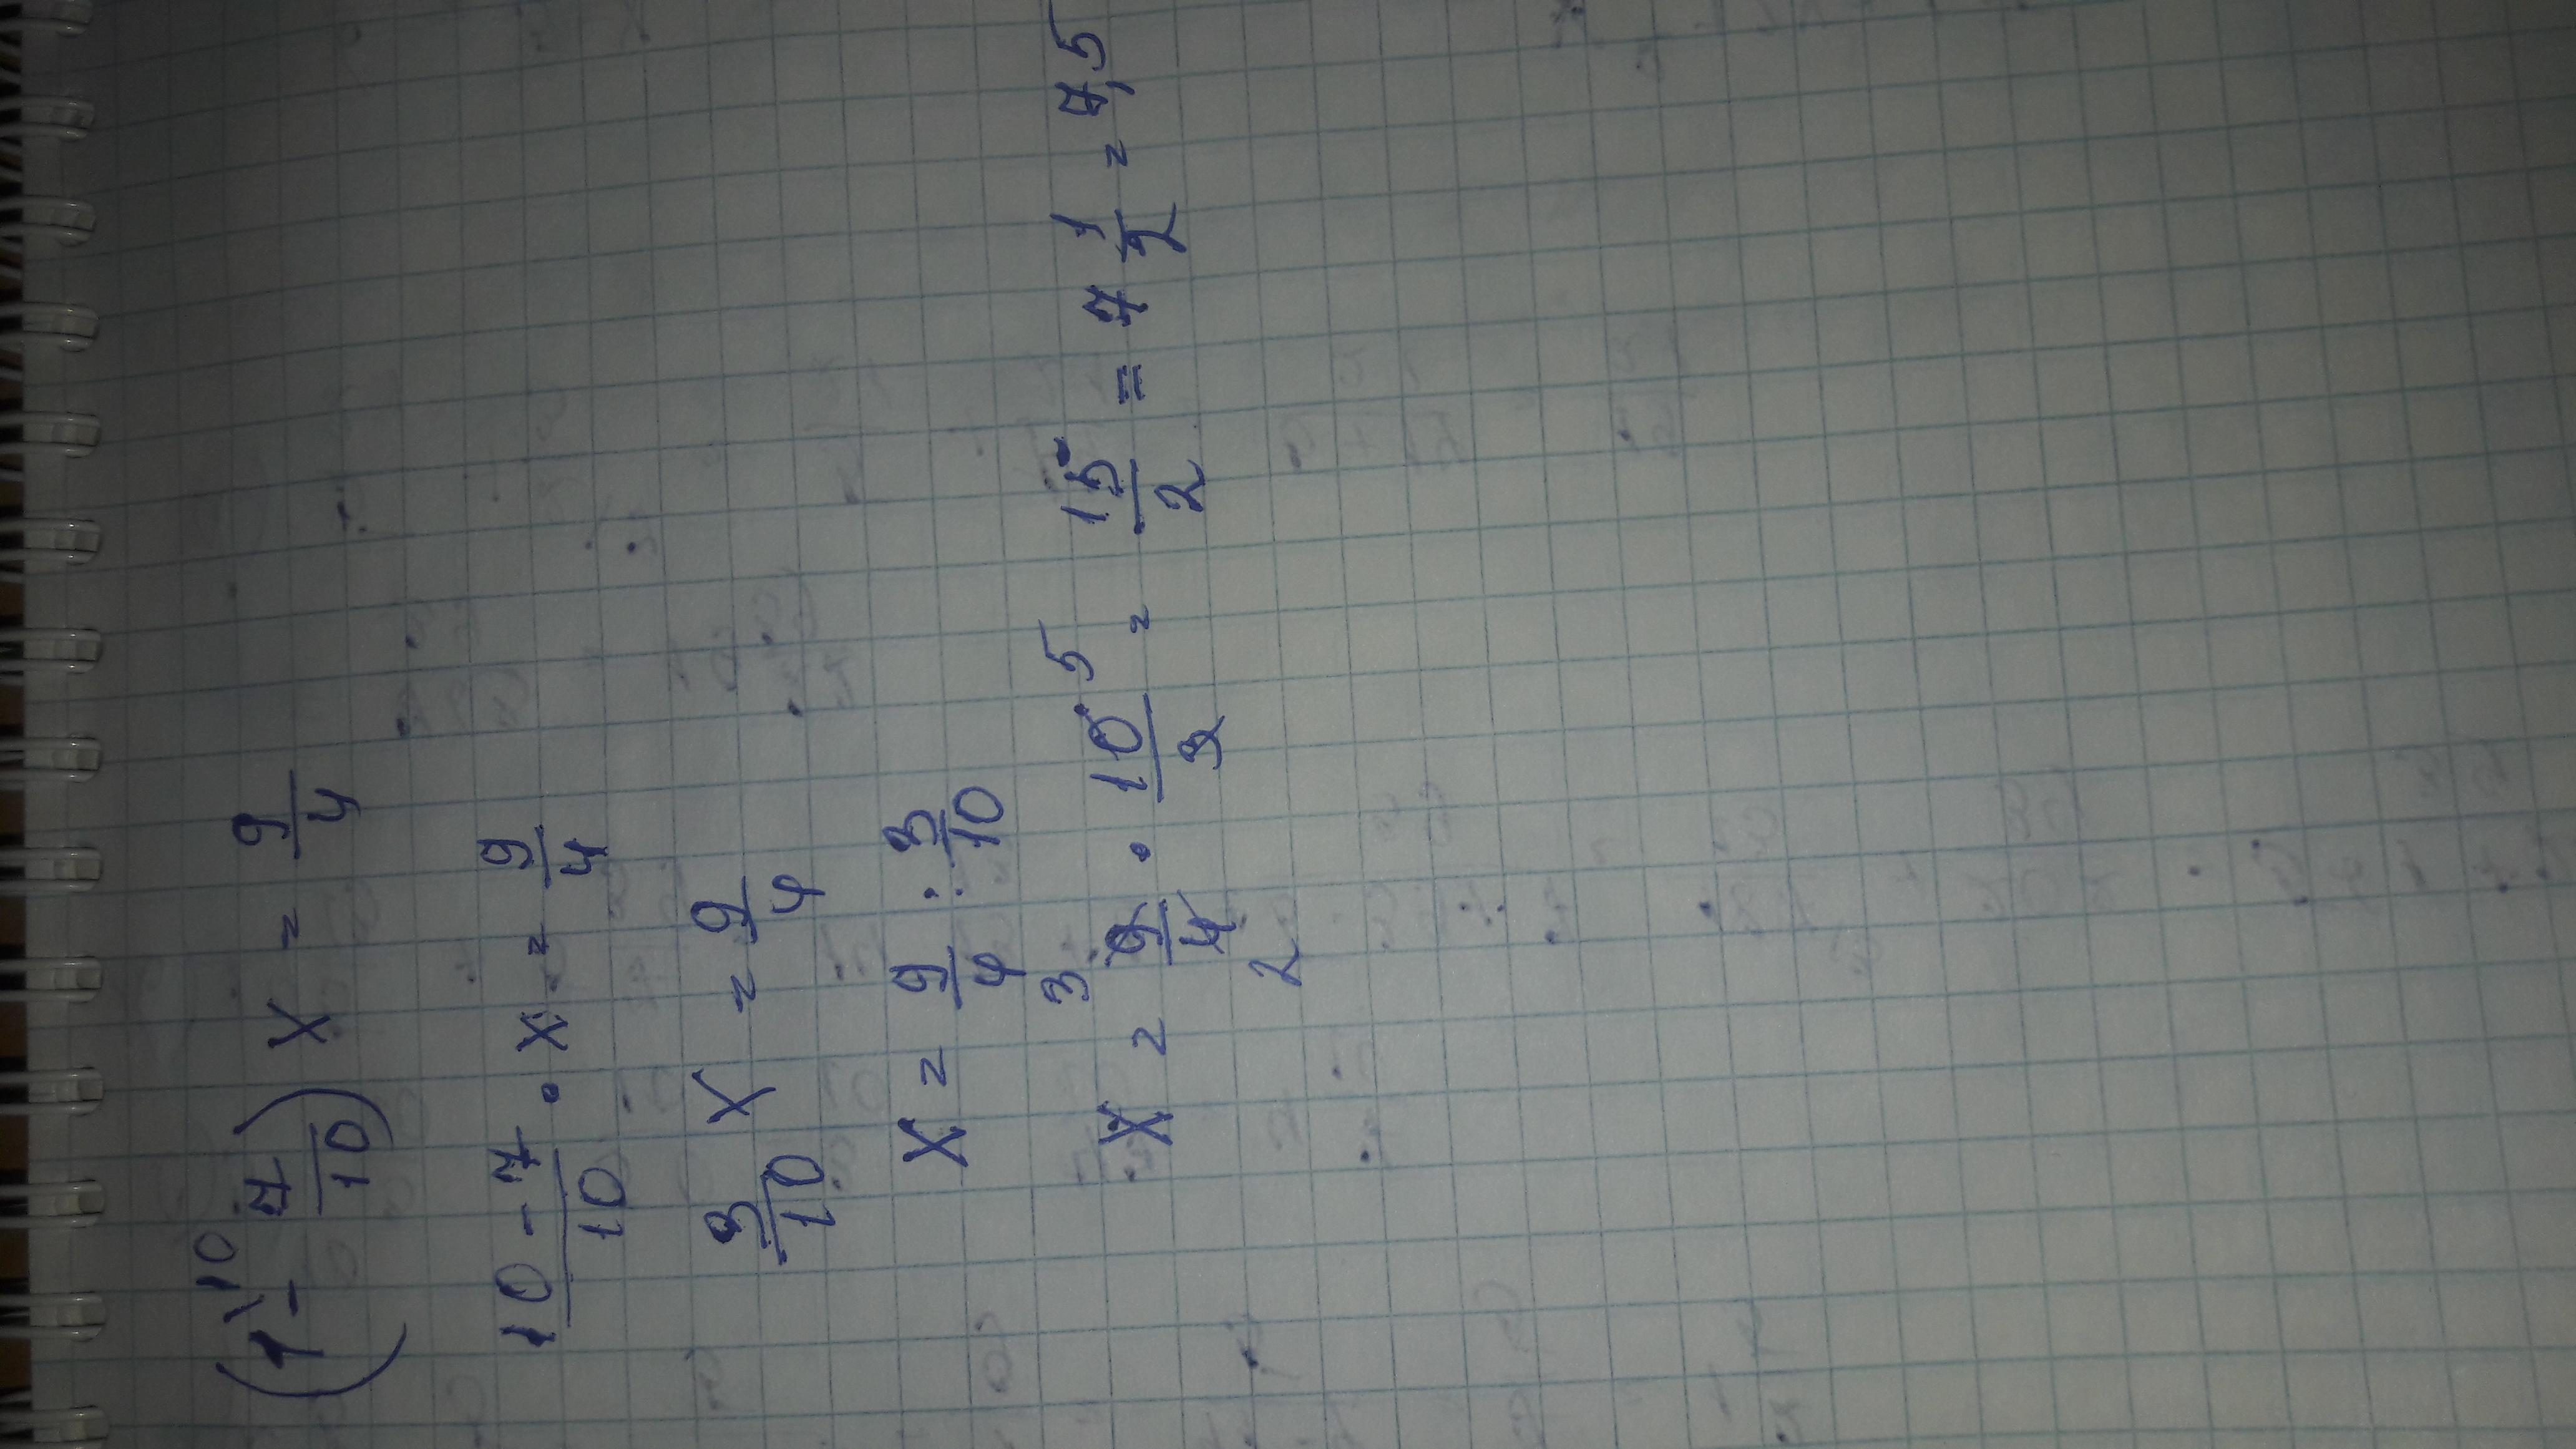 (1\10 - 7/10) x = 9/4
10-7/10 · x = 9/4
3/10 x = 9/4
x = 9/4 : 3/10
x = 3 9/4 2 · 10/3 5 = 15/2 = 7 1/2 = 7,5